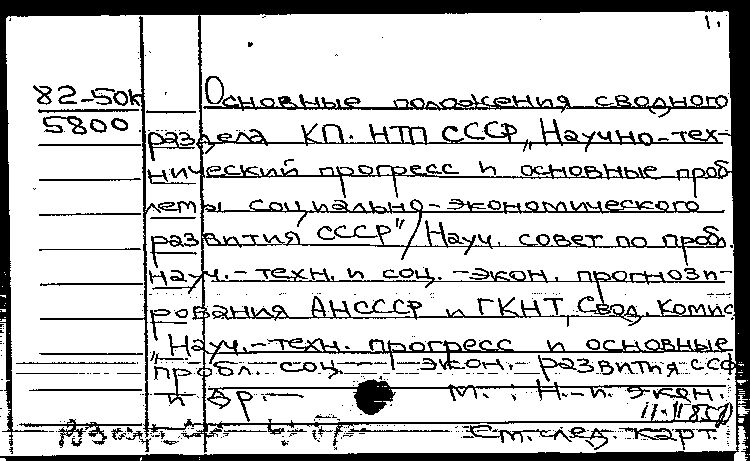 1.
82-50к
5800
Основные положения сводного
раздела КП. НТП СССР „Научно-тех-
нический прогресс и основные проб-
лемы социально-экономического
развития СССР"/Науч. совет по пробл.
науч.-техн. и соц.-экон. прогнози-
рования АНСССР и ГКНТ, Свод. Комис
„Науч.-техн. прогресс и основные
пробл. соц.-экон. развития ссср
и др.— М.: Н.-и. экон.
См. след. карт.